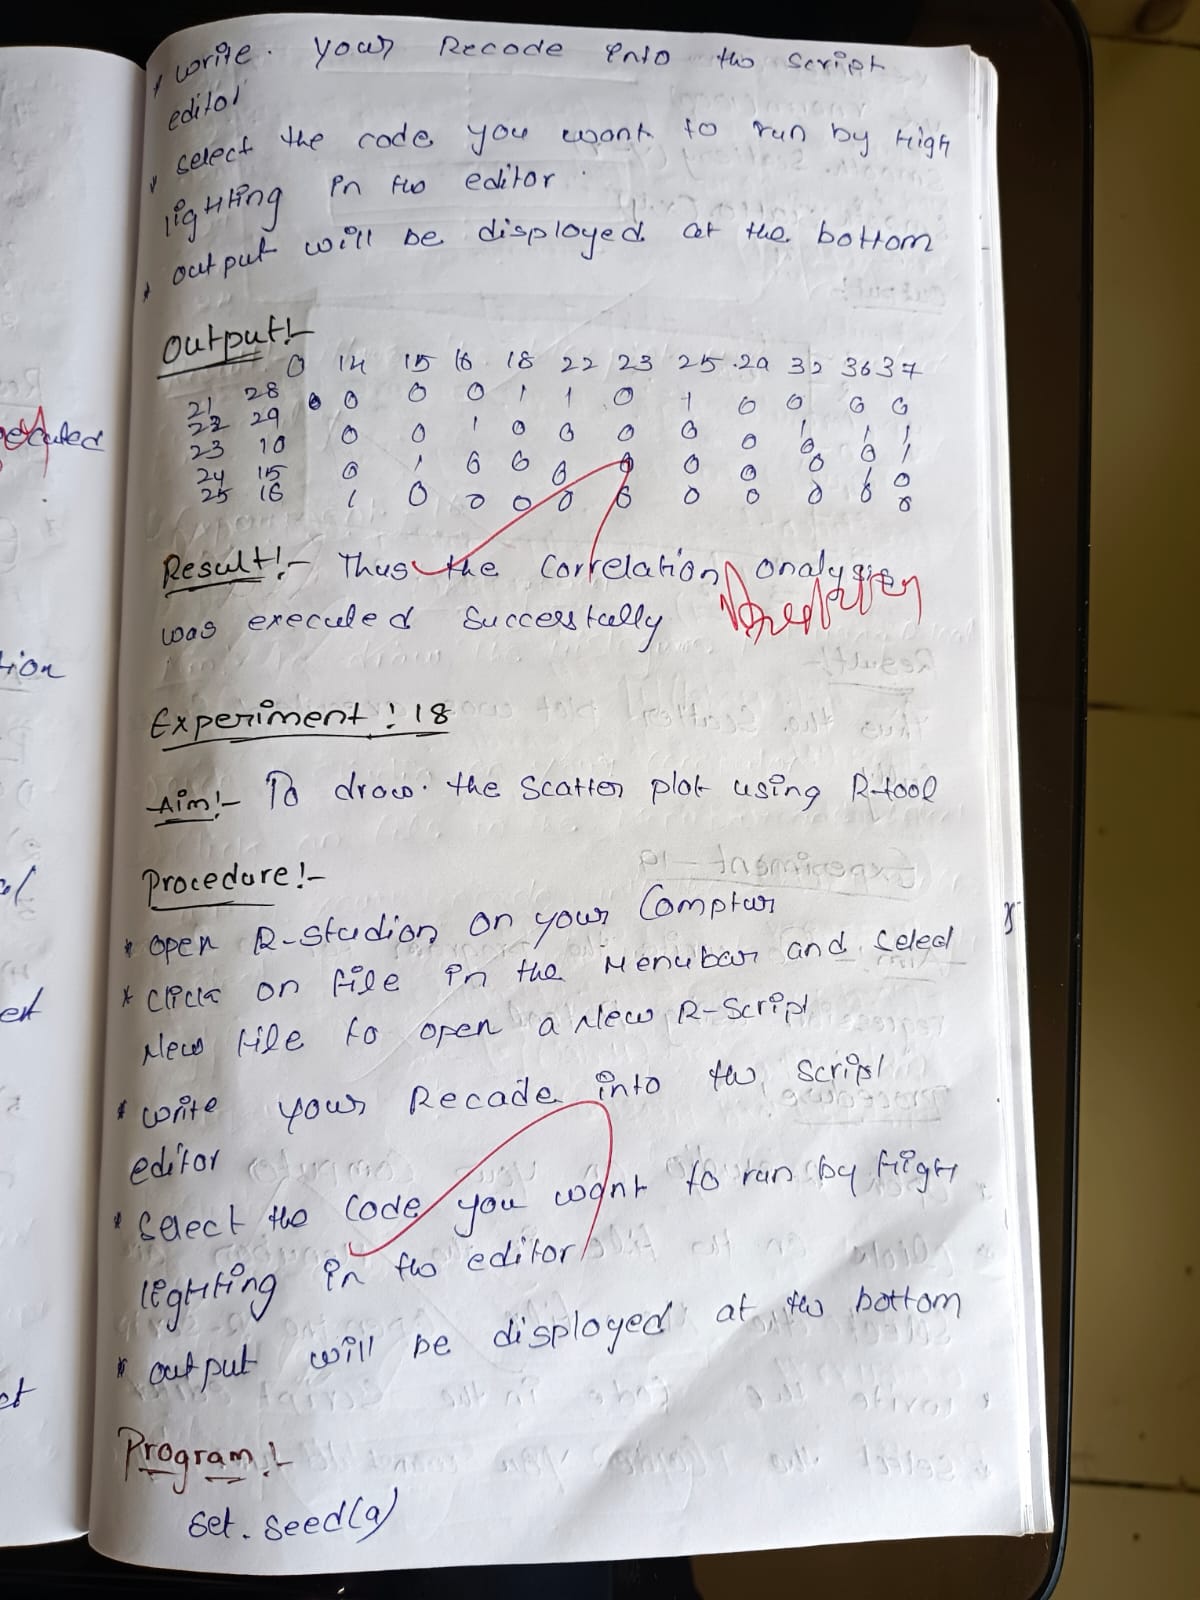 * write. your Recode into the script
editor
* select the code you want to run by High
lighting in the editor
* output will be displayed at the bottom
Output:-
0 14 15 16 18 22 23 25 29 32 36 37
21 28 0 0 0 1 1 0 1 0 0 0 0
22 29
23 10 0 0 1 0 0 0 0 0
24 15 0 1 0 0 0 0 0 0 0
25 16 1 0 0 0 0 0 0 0 0 0 0
Result:- Thus the Correlation analysis
was executed Successfully
Experiment : 18
Aim:- To draw. the Scatter plot using R-tool
Procedure:-
* open R-studion on your Comptur
* Click on file in the Menubar and Select
New file to open a New R-Script
* write your Recade into the script
editor
* Select the Code you want to run by High
lighting in the editor
* output will be displayed at the bottom
Program:-
Set.seed(a)